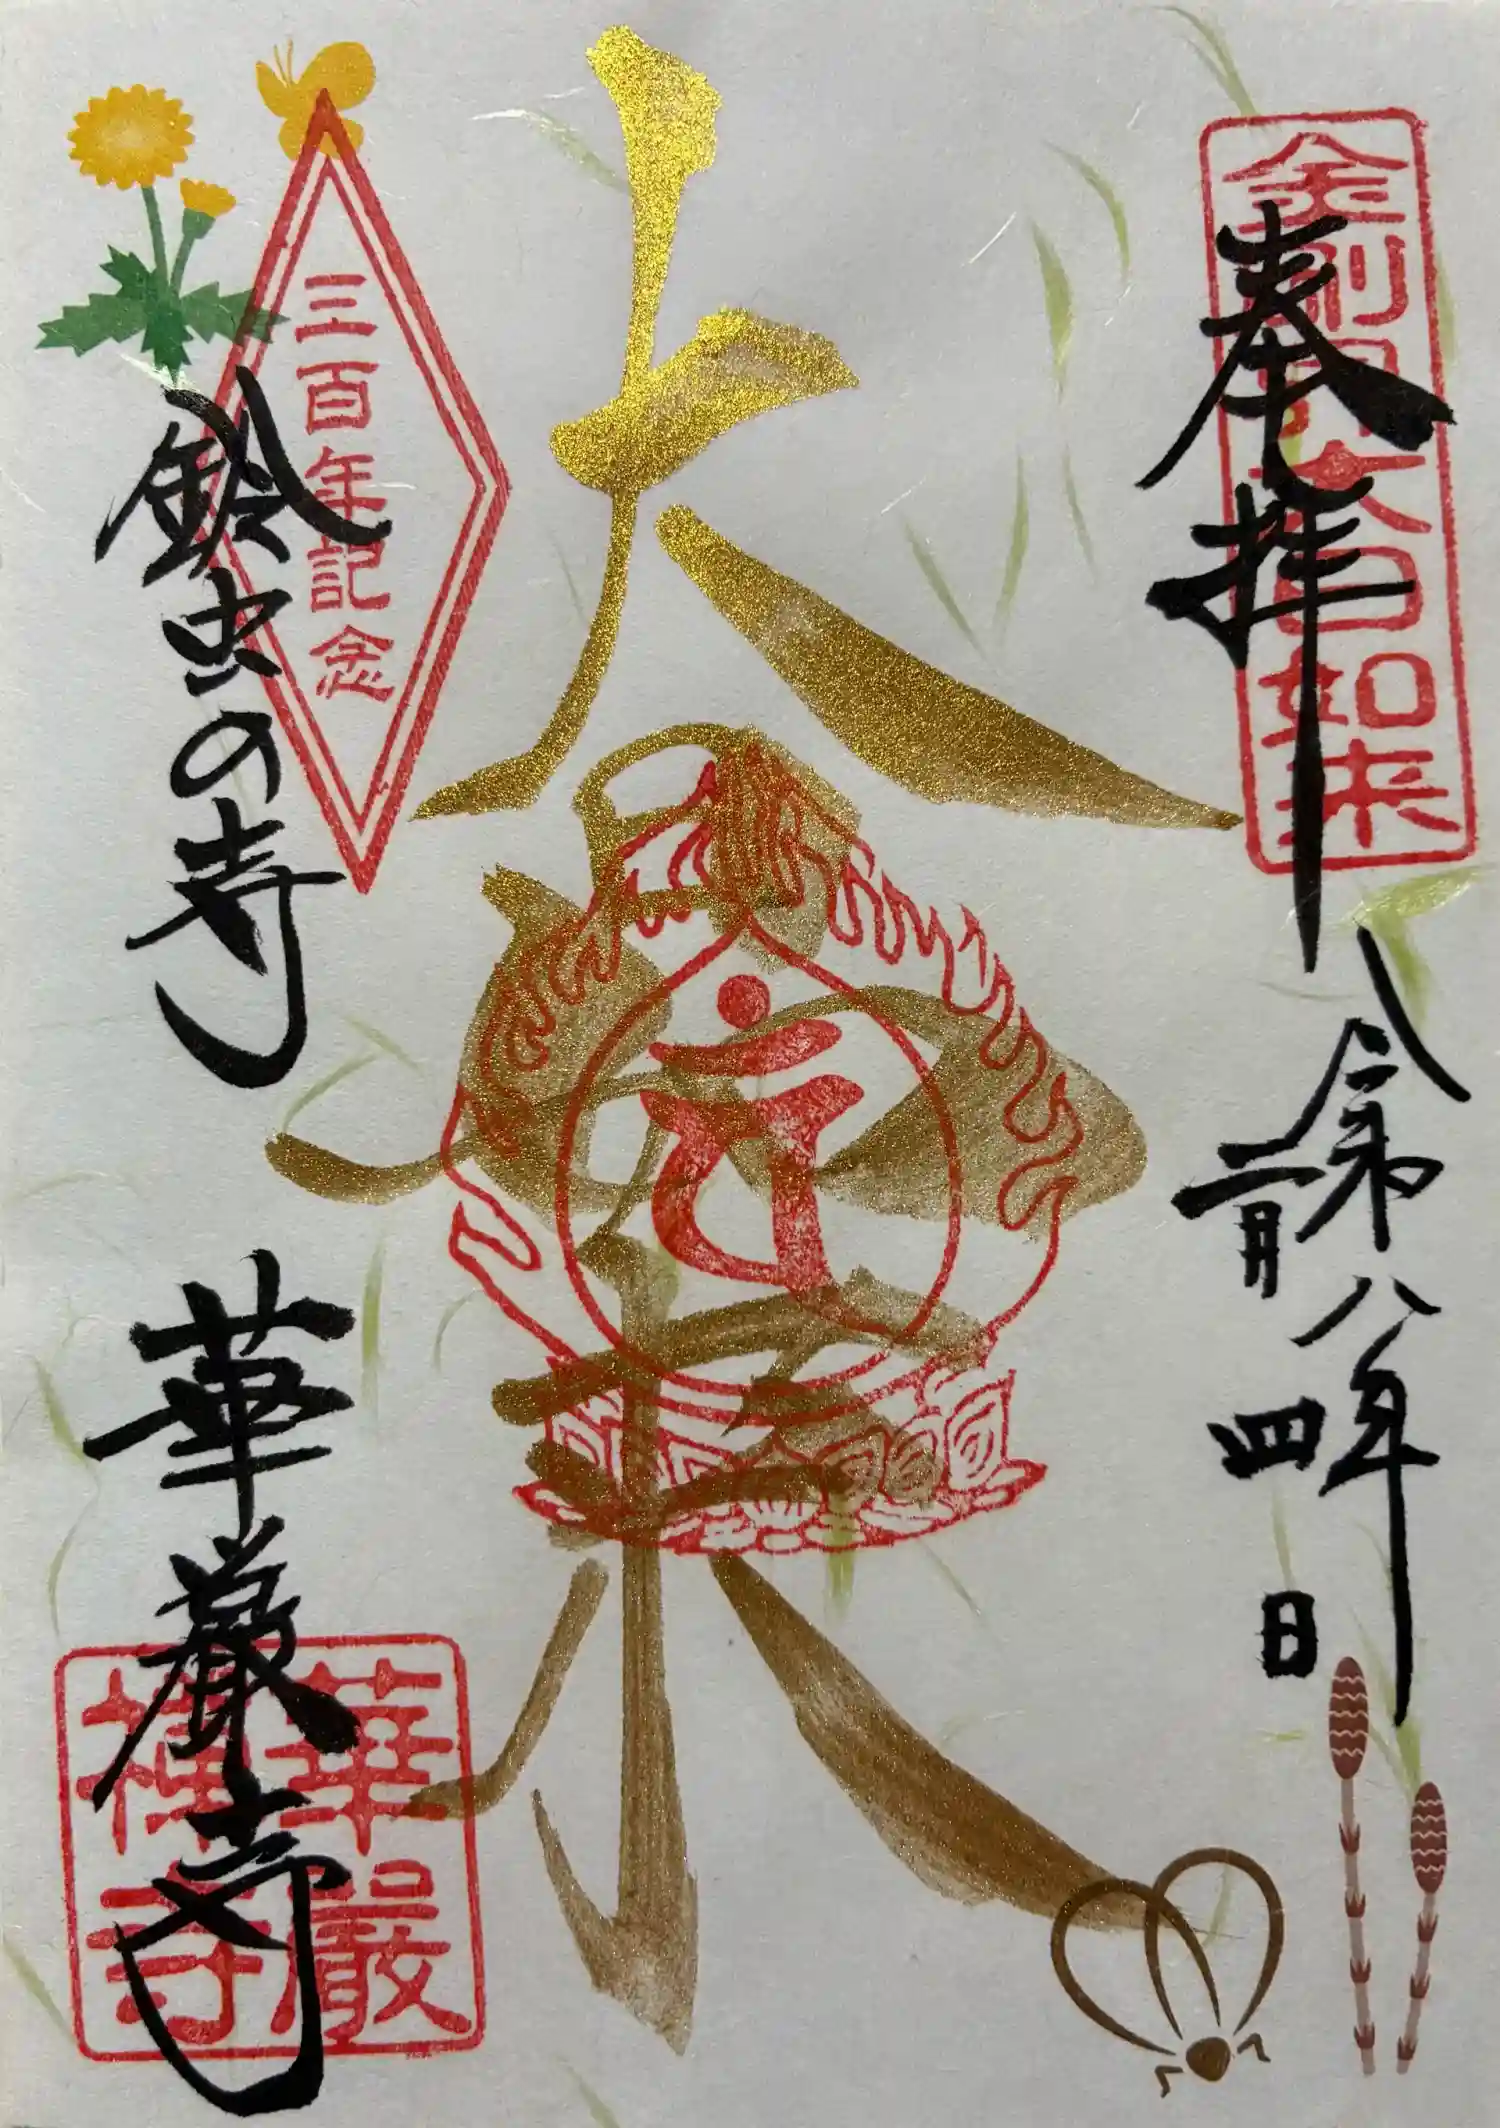 金剛界大日如来
奉拝
令和八年
二月四日
大日如来
三百年記念
鈴虫の寺
華厳寺
華嚴
禅寺